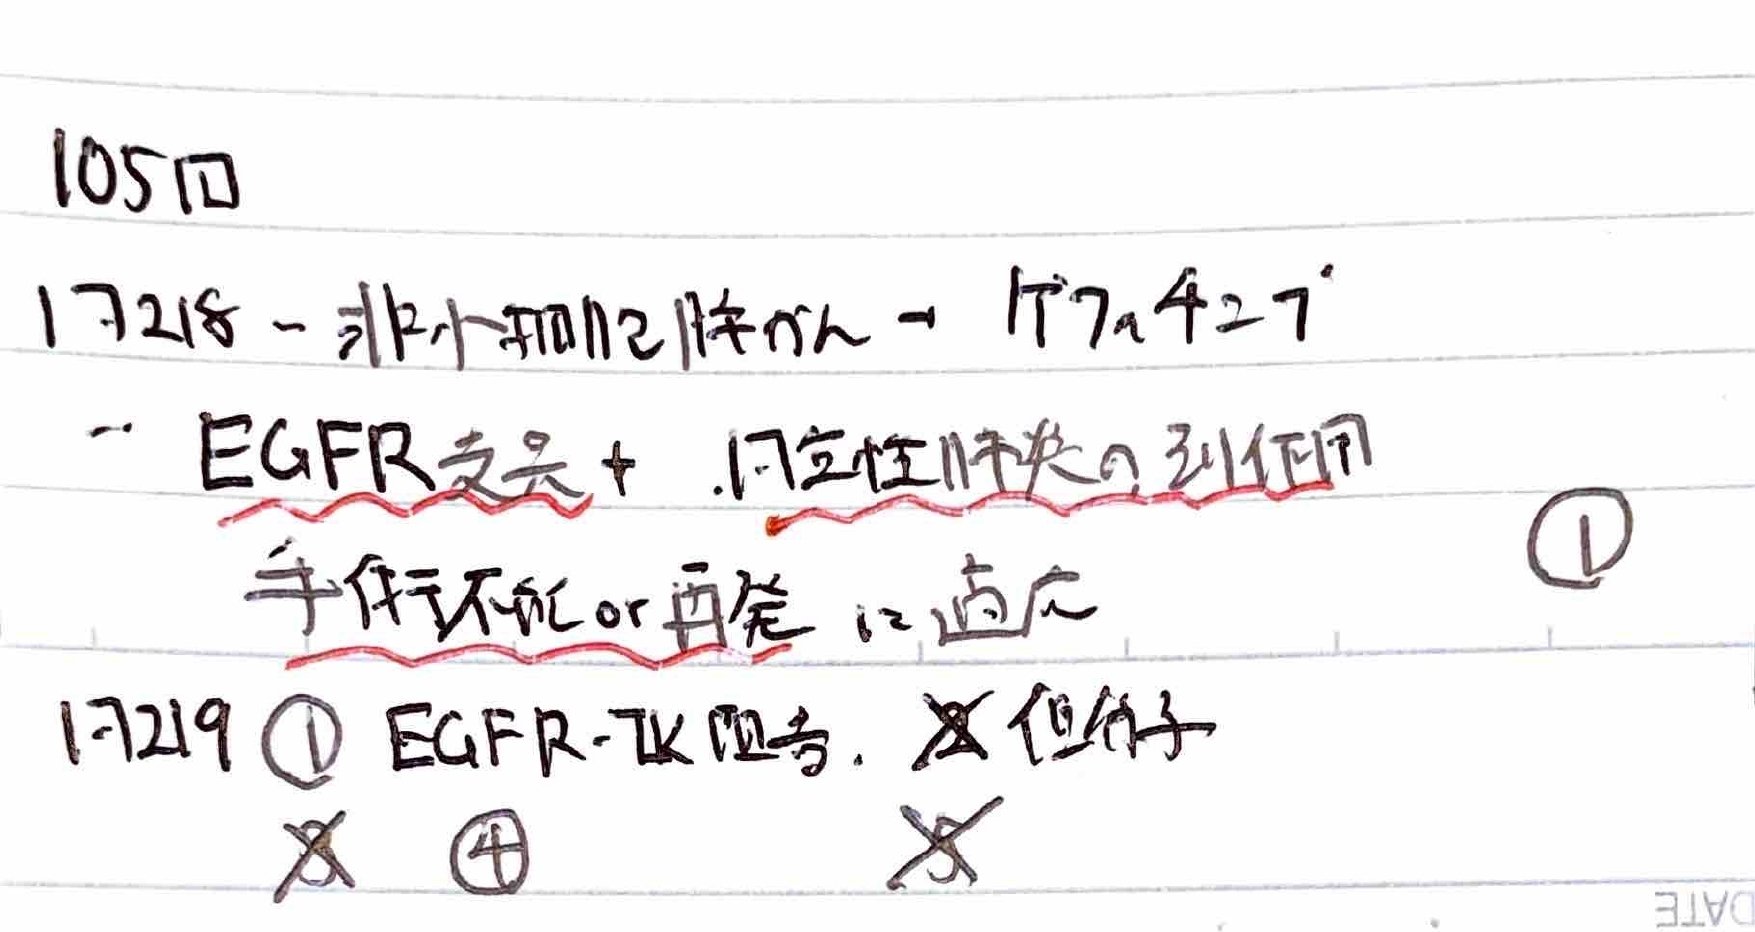 105回
問218 - 非小細胞肺がん - ゲフィチニブ
- EGFR変異+ .間質性肺炎の副作用
手術不能or再発に適応 ①
問219 ① EGFR-TK阻害. 2 低分子
3 ④ 5
DATE